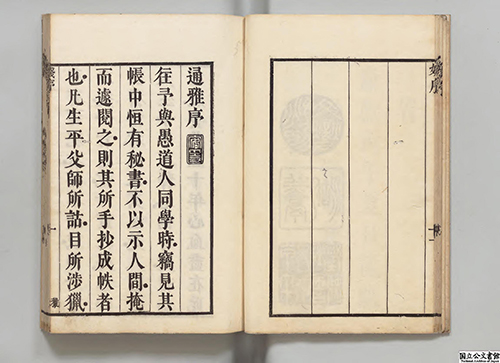 通雅序
徃予與愚道人同學時竊見其
帳中恒有秘書不以示人間掩
而遽閱之則其所手抄成帙者
也凡生平父師所詁目所涉獵
國立公文書館
National Archives of Japan